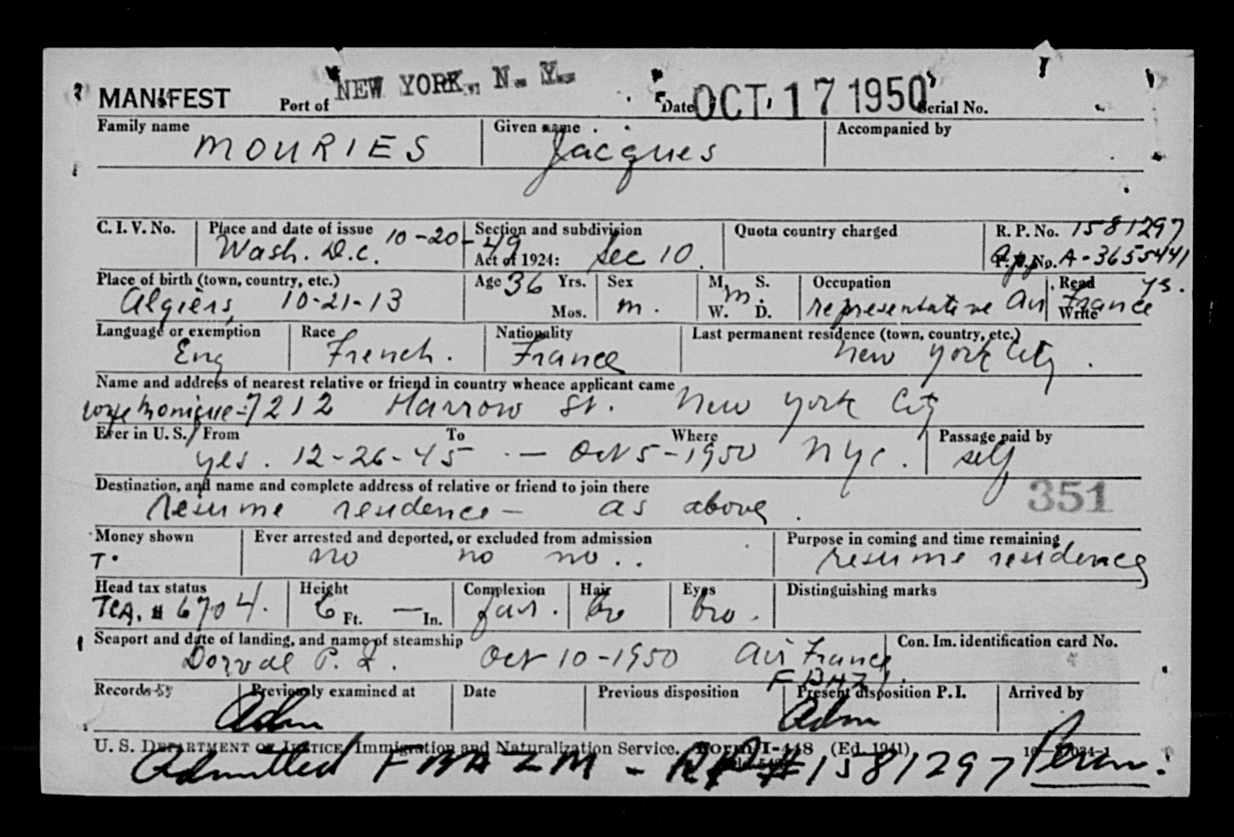 MANIFEST Port of NEW YORK, N. Y. Date OCT 17 1950 Serial No.
Family name Given name Accompanied by
MOURIES Jacques
C. I. V. No. Place and date of issue Section and subdivision Quota country charged R. P. No. 1581297
Wash. D.C. 10-20-49 Act of 1924: Sec 10. P. P. No. A-3655441
Place of birth (town, country, etc.) Age 36 Yrs. Sex M. S. Occupation Read ys.
Algiers 10-21-13 Mos. m. m. W. D. representative Air France Write
Language or exemption Race Nationality Last permanent residence (town, country, etc.)
Eng French. France New York City.
Name and address of nearest relative or friend in country whence applicant came
wife Monique-7212 Harrow St. New York City
Ever in U. S. From To Where Passage paid by
yes. 12-26-45 - Oct 5-1950 NYC. self
Destination, and name and complete address of relative or friend to join there
resume residence - as above. 351
Money shown Ever arrested and deported, or excluded from admission Purpose in coming and time remaining
T. no no no.. resume residence
Head tax status Height Complexion Hair Eyes Distinguishing marks
TCA, # 6704. 6 Ft. — In. fair. br bro.
Seaport and date of landing, and name of steamship Con. Im. identification card No.
Dorval P. Q. Oct 10-1950 Air France
Records by Previously examined at Date Previous disposition Present disposition P. I. Arrived by
Adm Adm
U. S. DEPARTMENT OF JUSTICE, Immigration and Naturalization Service. FORM I-448 (Ed. 1941)
Admitted FBAZM - RP# 1581297 Perm.